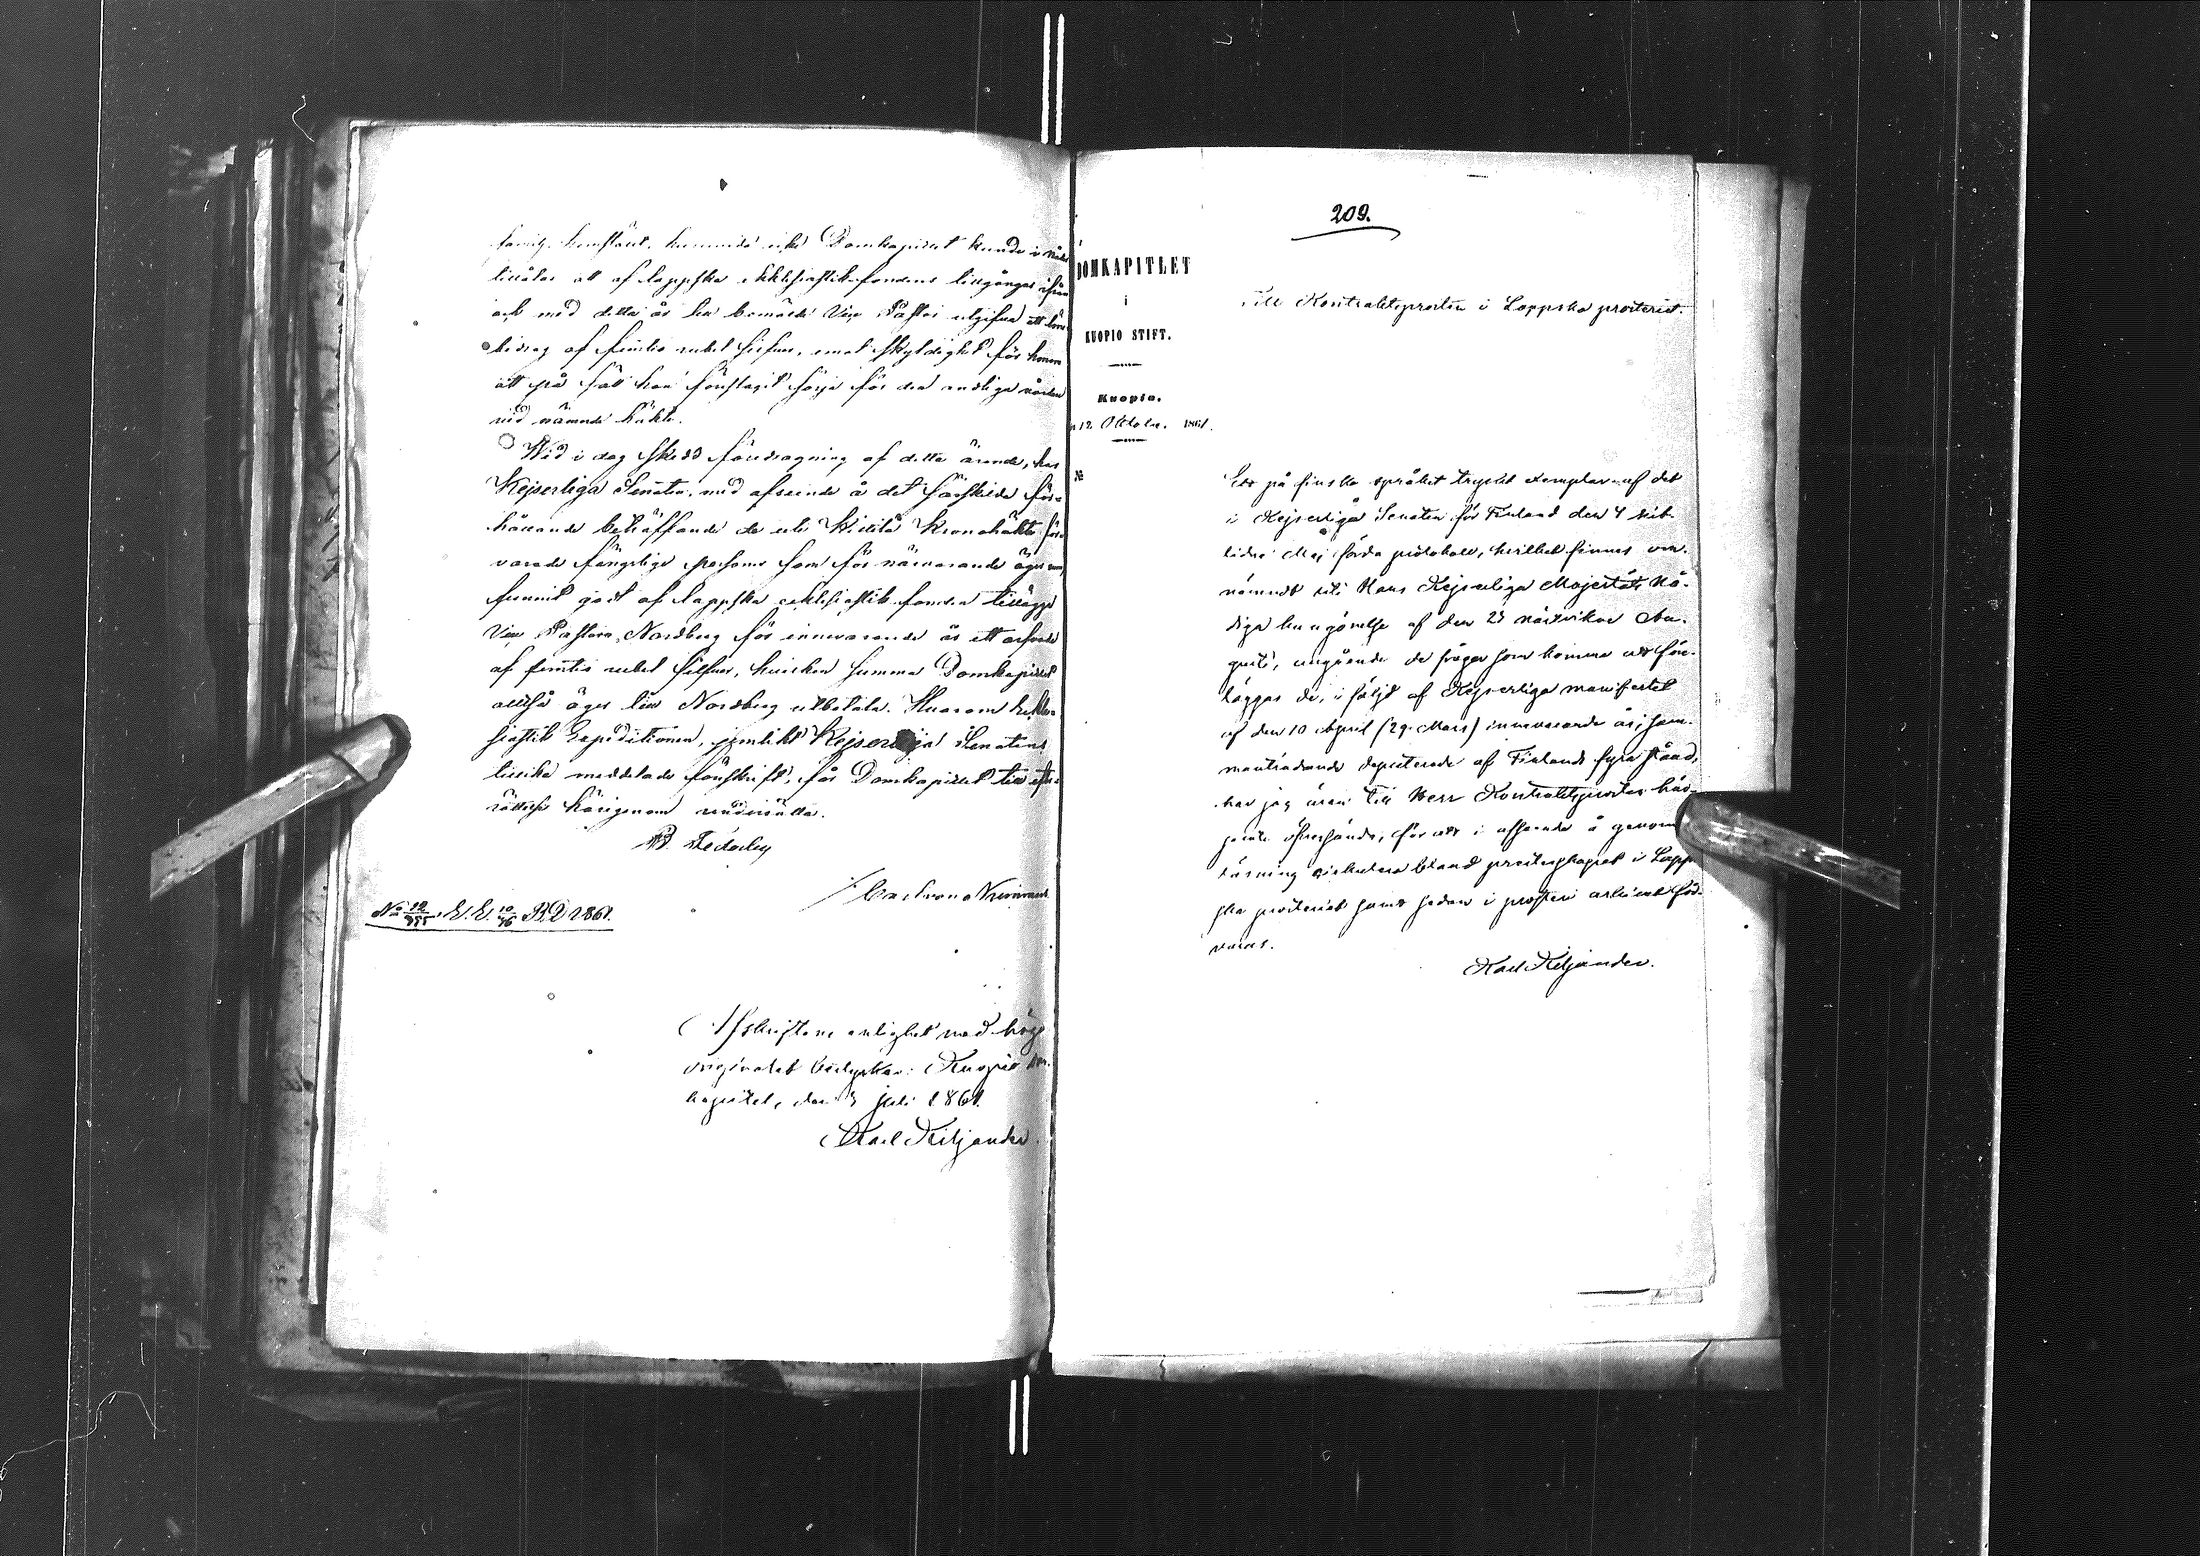 hemställt, Domkapitlet kunde i
tillåtas att af lappska ekklesiastik-fondens tillgångar
och med detta år bemälde Vice Pastor utgifva ett
bidrag af femtio rubel silfver, emot skyldighet för honom
att på sätt han föreslagit sörja för den andliga vården
vid nämnde häkte.
Wid i dag skedd föredragning af detta ärende, har
Kejserliga Senaten, med afseende å det särskilda för-
hållande beträffande de uti Kittilä Kronohäkte för-
varade fängslige personer som för närvarande äger rum,
funnit godt af lappska ekklesiastik-fonden tillägga
Vice Pastorn Nordberg för innevarande år ett arfvode
af femtio rubel silfver, hvilken summa Domkapitlet
alltså äger till Nordberg utbetala. Hvarom Eckle-
siastik Expeditionen, jemlikt Kejserliga Senatens
tillika meddelade föreskrift, får Domkapitlet till efter-
rättelse härigenom underrätta.
No 12/355. E. E. 10/46 R.D 1861.
Afskriftens enlighet med höga
originalet betygskar: Kuopio Dom-
kapitel, den 3 juli 1861.
Karl Kiljander
209.
DOMKAPITLET
i
KUOPIO STIFT.
Kuopio.
n 12 Oktober. 1861.
№
Till Kontraktsprosten i Lappska prosteriet.
Ett på finska språket tryckt exemplar af det
i Kejserliga Senaten för Finland den 4 sist-
lidne Maj förda protokoll, hvilket finnes om-
nämndt uti Hans Kejserliga Majestäts Nå-
diga kungörelse af den 23 nästvikne Au-
gusti, angående de frågor som komma att före-
läggas de, i följd af Kejserliga manifestet
af den 10 April (29 Mars) innevarande år, sam-
manträdande deputerade af Finlands fyra stånd,
har jag äran till Herr Kontraktsprosten här-
jemte öfversända, för att i afseende å genom-
läsning cirkulera bland presterskapet i Lapp-
ska prosteriet samt sedan i prosteri arkivet för-
varas.
Karl Kiljander.